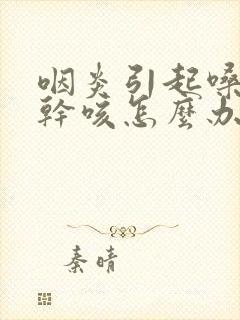 咽炎引起嗓
幹咳怎麼办
秦晴